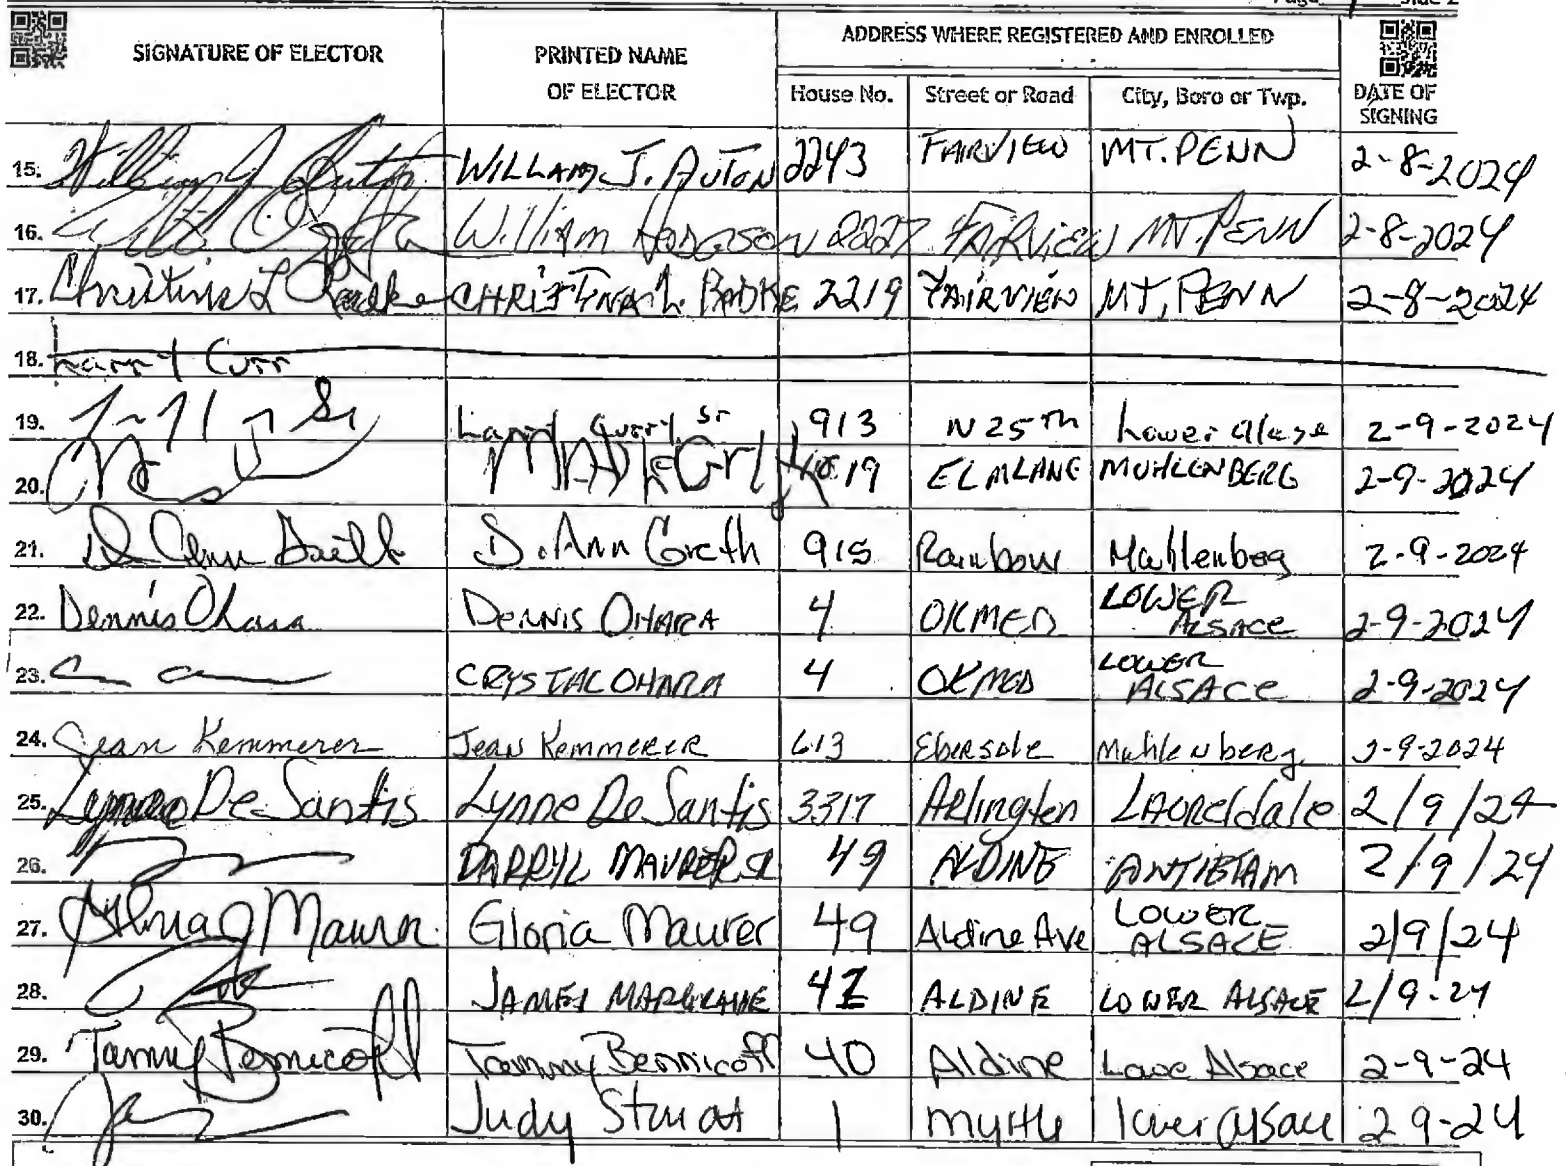 Side 2
SIGNATURE OF ELECTOR PRINTED NAME OF ELECTOR ADDRESS WHERE REGISTERED AND ENROLLED DATE OF SIGNING
House No. Street or Road City, Boro or Twp.
15. William J. Auton WILLIAM J. AUTON 2243 FAIRVIEW MT. PENN 2-8-2024
16. William Hodgson 2227 FAIRVIEW MT. PENN 2-8-2024
17. Christina L CHRISTINA L. RADKE 2219 FAIRVIEW MT, PENN 2-8-2024
18. Larry Curr
19. Sr Larry Curry Sr 913 N 25th Lower 2-9-2024
20. 1019 ELM LANE MUHLENBERG 2-9-2024
21. D Ann Greth D. Ann Greth 915 Rainbow Muhlenberg 2-9-2024
22. Dennis Ohara DENNIS OHARA 4 OKMED LOWER ALSACE 2-9-2024
23. CRYSTAL OHARA 4 OKMED LOWER ALSACE 2-9-2024
24. Jean Kemmerer Jean Kemmerer 613 Ebersole Muhlenberg. 2-9-2024
25. Lynne DeSantis Lynne DeSantis 3317 Arlington Laureldale 2/9/24
26. DARRYL MAURER SR 49 ALDINE ANTIETAM 2/9/24
27. Gloria Maurer Gloria Maurer 49 Aldine Ave LOWER ALSACE 2/9/24
28. JAMES 42 ALDINE LOWER ALSACE 2/9-24
29. Tammy Bernicoff Tammy Bernicoff 40 Aldine Lowe Alsace 2-9-24
30. Judy Stewart 1 Myrtle lower alsace 2 9-24